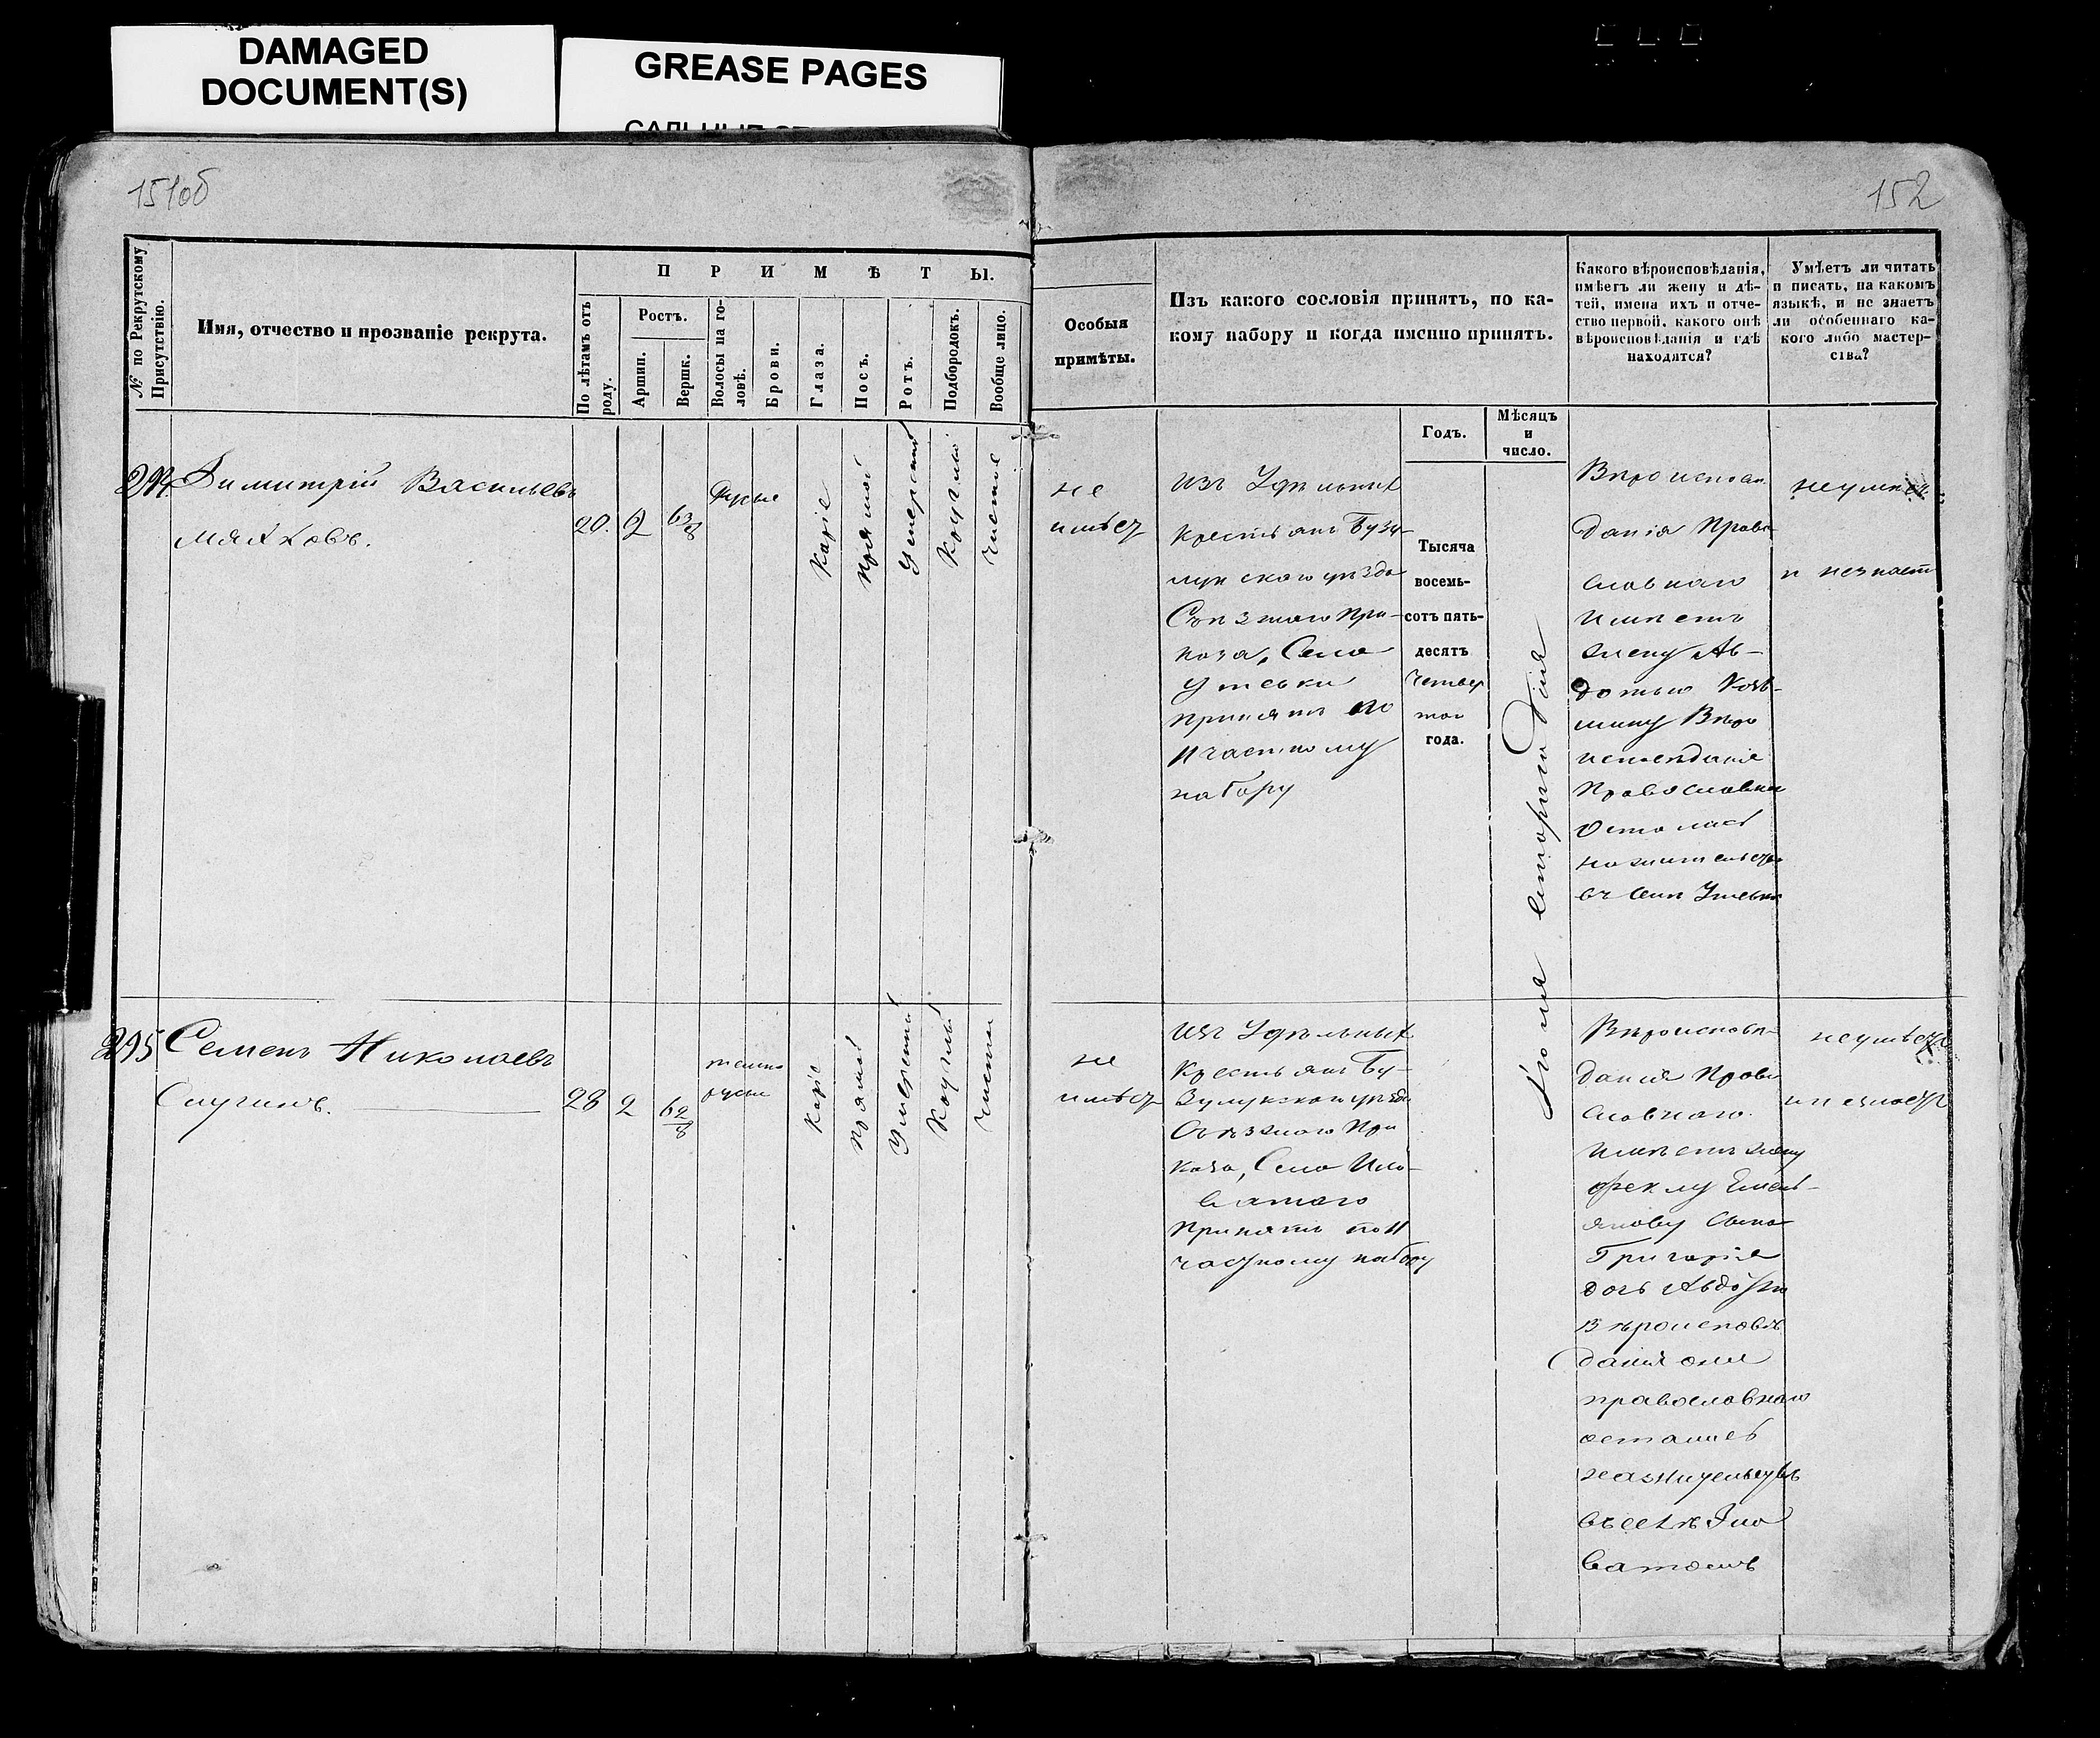 DAMAGED
DOCUMENT(S)
GREASE PAGES
151об
152
№ по Рекрутскому
Присутствію.
Имя, отчество и прозваніе рекрута.
ПРИМѢТЫ.
По лѣтамъ отъ
роду.
Ростъ.
Аршин.
Вершк.
Волосы на го-
ловѣ.
Брови.
Глаза.
Носъ.
Ротъ.
Подбородокъ.
Вообще лицо.
Особыя
примѣты.
Изъ какого сословія принятъ, по ка-
кому набору и когда именно принятъ.
Годъ.
Мѣсяцъ
и
число.
Какого вѣроисповѣданія,
имѣетъ ли жену и дѣ-
тей, имена ихъ и отче-
ство первой, какого онѣ
вѣроисповѣданія и гдѣ
находятся?
Умѣетъ ли читать
и писать, на какомъ
языкѣ, и не знаетъ
ли особеннаго ка-
кого либо мастер-
ства?
294
Димитрій Васильевъ
Мяхковъ.
20.
2
6 3/8
Русые
Каріе
прямой
Умеренный
Круглый
чистое
не
имѣет
Изъ Удѣльных
Крестьянъ Бузу-
лукскаго уѣзда
Съѣзжаго При-
каза, Села
Утевки
принятъ по
11 частному
набору
Тысяча
восемь-
сотъ пять-
десятъ
четвер
таго
года.
Іюля втораго дня
Вѣроиспов
данія Право
славнаго
Имѣетъ
жену Ав-
дотью Козь-
мину Вѣро
исповѣданія
Православна
Осталась
на жительств
въ селѣ Утевкѣ
неумѣет
и незнаетъ
295
Семенъ Николаевъ
28
2
6 2/8
темно
русые
Каріе
Прямой
Умеренный
Круглый
чистое
не
имѣет
Изъ Удѣльных
Крестьянъ Бу-
зулукскаго уѣзда
Съѣзжаго При
каза, Села Ило-
ватаго
Принятъ по 11
частному набору
Вѣроисповѣ-
данія Право
славнаго.
Имѣетъ жену
Феклу Емель-
янову сына
Григорія
дочь Авдотью
Вѣроисповѣ
данія они
православнаго
остались
на жительствѣ
въ селѣ Ило
ватомъ
неумѣет
и незнает